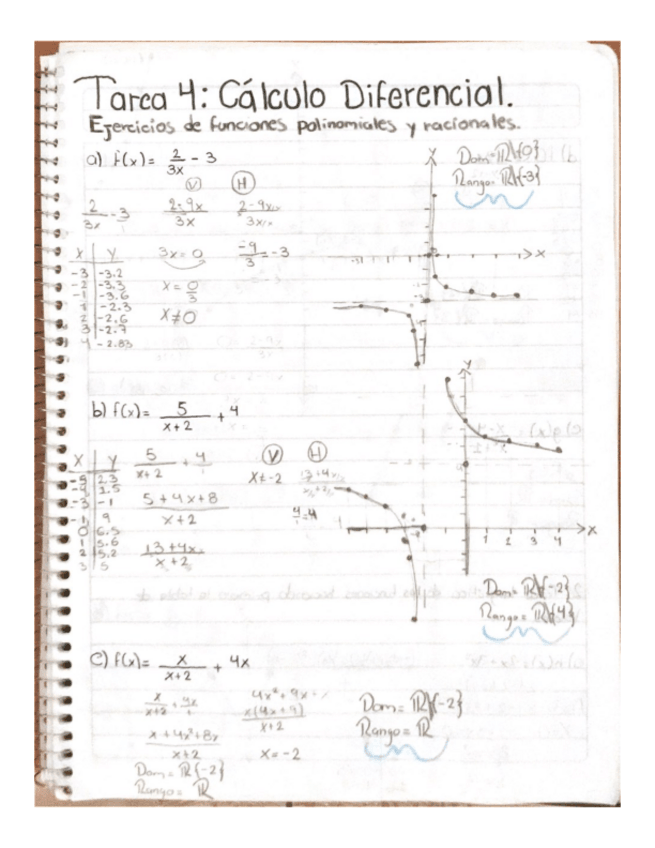 Tarea 4: Cálculo Diferencial.
Ejercicios de funciones polinomiales y racionales.
a) f(x) = 2/3x - 3
Dom = ℝ\{0}
Rango = ℝ\{-3}
V H
2/3x - 3 2-9x/3x
x y
-3 -3.2
-2 -3.3
-1 -3.6
1 -2.3
2 -2.6
3 -2.7
4 -2.83
3x = 0 -9/3 = -3
x = 0/3
x ≠ 0
x
b) f(x) = 5/x+2 + 4
x y
-4 1.5
-3 -1
-1 9
0 6.5
1 5.6
2 5.2
3 5
5/x+2 + 4/1 V H
x ≠ -2
5+4x+8/x+2 4/1 = 4
13+4x/x+2
y
x
1 2 3 4
Dom = ℝ\{-2}
Rango = ℝ\{4}
c) f(x) = x/x+2 + 4x
x/x+2 + 4x/1
x(4x+9)/x+2
x+4x²+8x/x+2 x = -2
Dom = ℝ{-2}
Rango = ℝ
Dom = ℝ\{-2}
Rango = ℝ